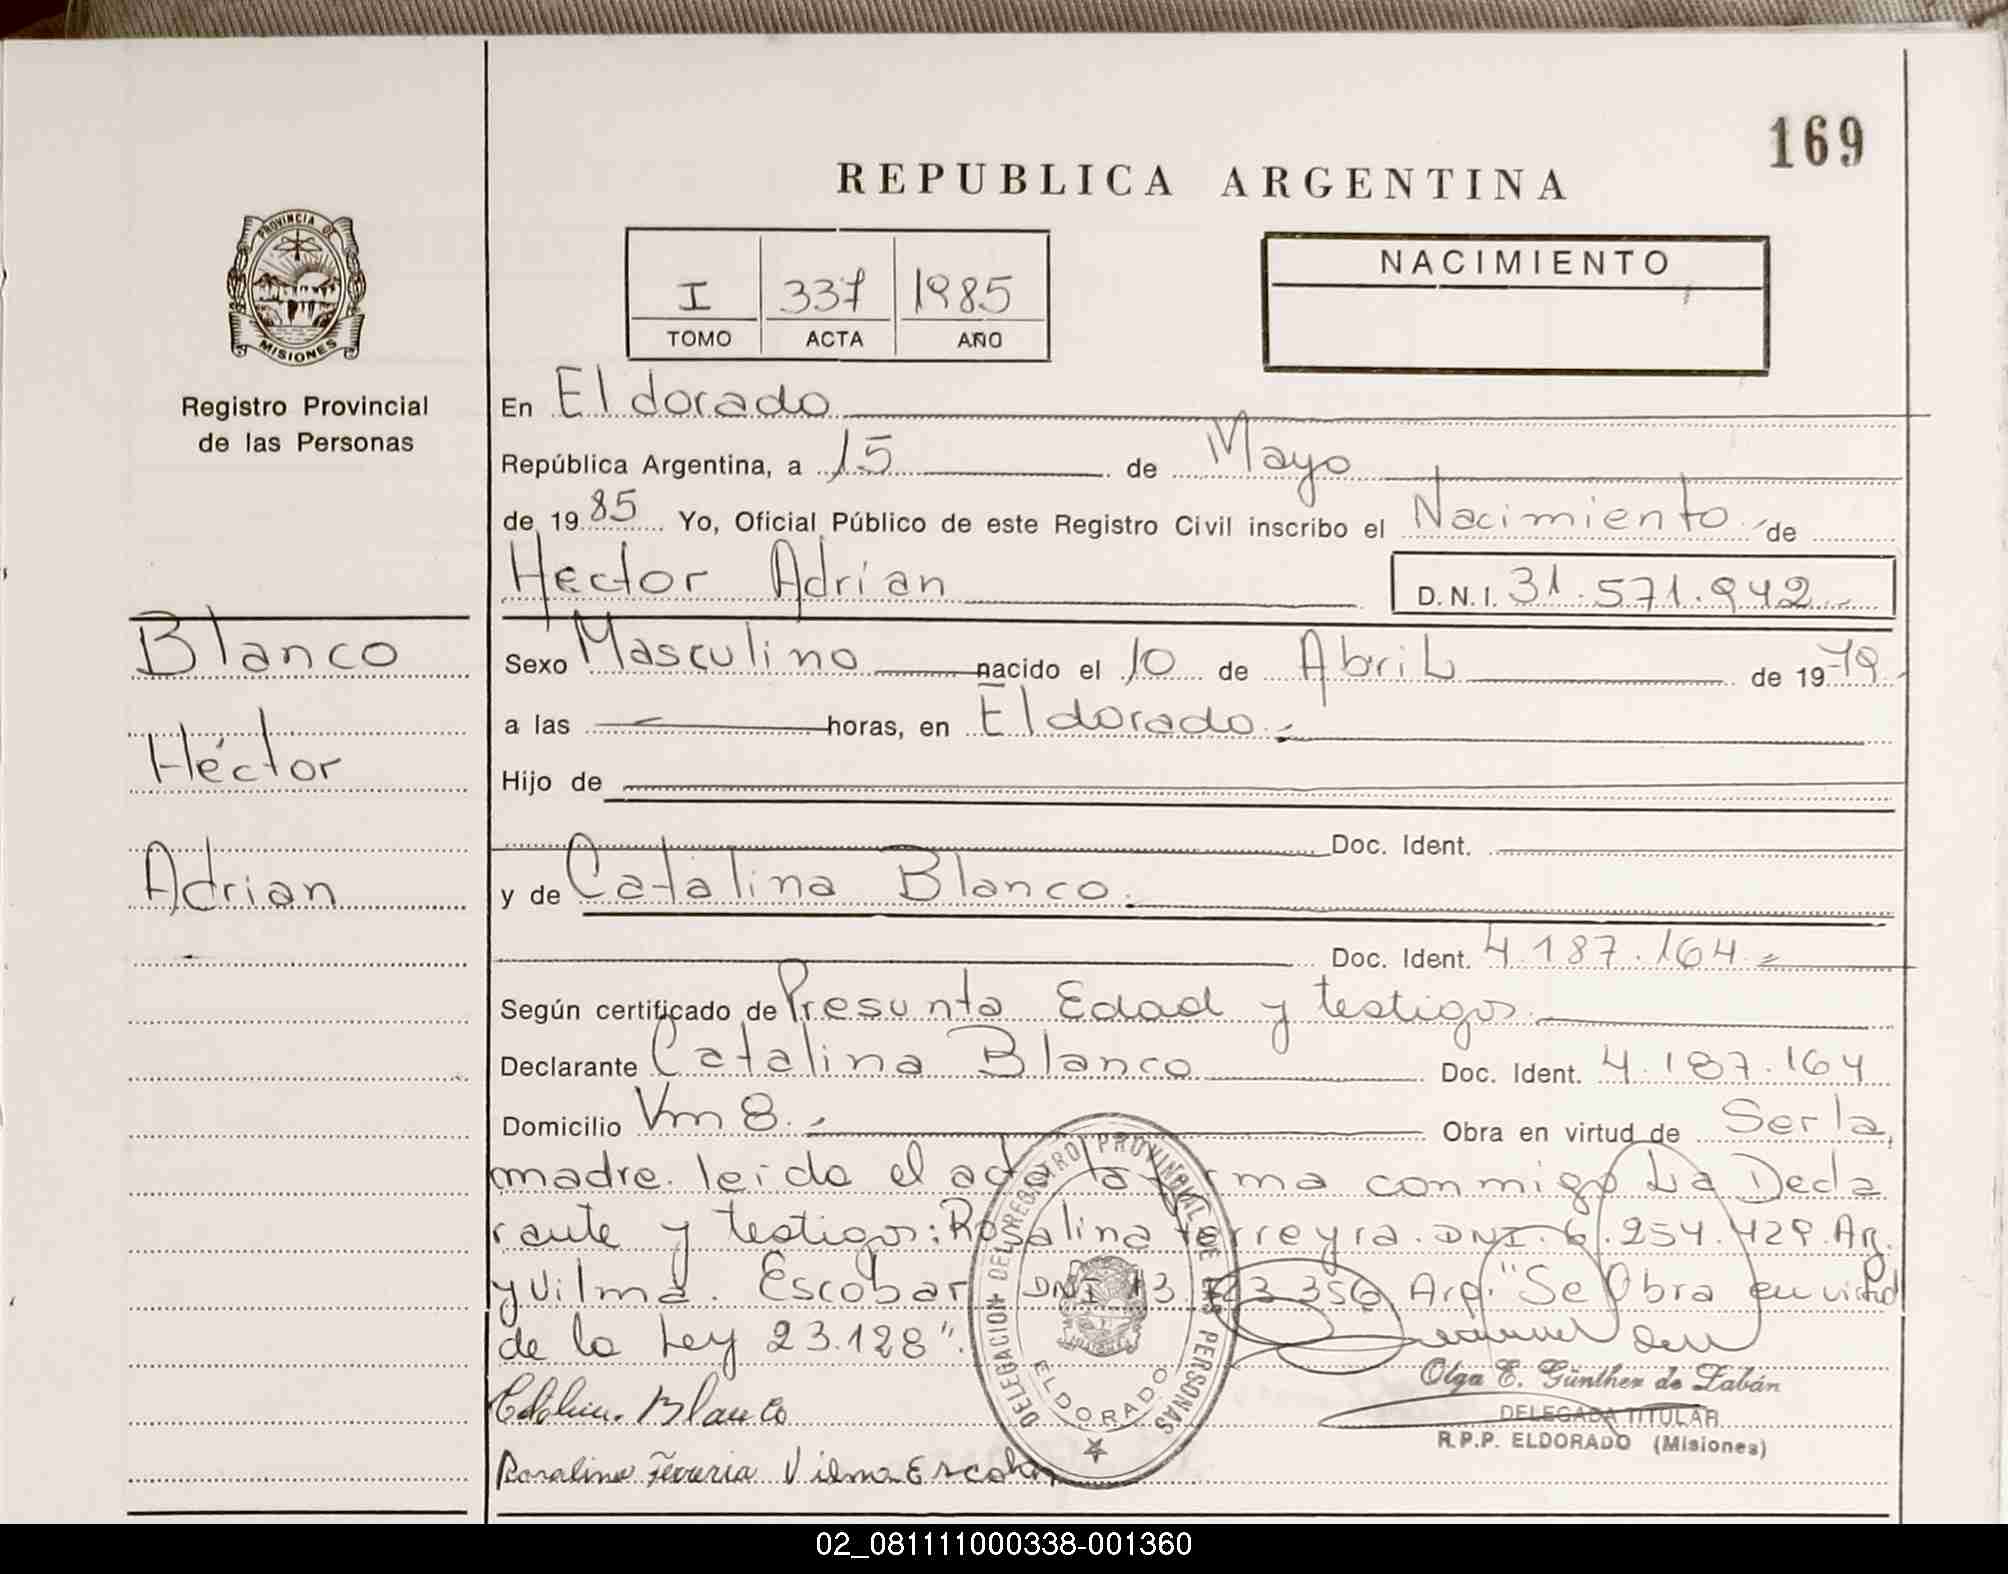 169
REPUBLICA ARGENTINA
PROVINCIA DE
MISIONES
Registro Provincial
de las Personas
I 337 1985
TOMO ACTA AÑO
NACIMIENTO
En Eldorado
República Argentina, a 15 de Mayo
de 1985 Yo, Oficial Público de este Registro Civil inscribo el Nacimiento de
Hector Adrian D.N.I. 31.571.942
Blanco
Héctor
Adrian
Sexo Masculino nacido el 10 de Abril de 1979
a las horas, en Eldorado.
Hijo de
Doc. Ident.
y de Catalina Blanco.
Doc. Ident. 4.187.164
Según certificado de Presunta Edad y testigos.
Declarante Catalina Blanco Doc. Ident. 4.187.164
Domicilio Km 8. Obra en virtud de Ser la
madre. leida el acta la firma conmigo La Decla
rante y testigos: Rosalina Ferreyra. DNI. 6.254.429. Arg.
y Vilma. Escobar DNI 13. 356 Arg. "Se Obra en virtud
de la Ley 23.128".
Blanco
Rosalina Vilma Escobar
DELEGACION DEL REGISTRO PROVINCIAL DE LAS PERSONAS
ELDORADO
Olga E. Günther de Zabán
DELEGADA TITULAR
R.P.P. ELDORADO (Misiones)
02_081111000338-001360